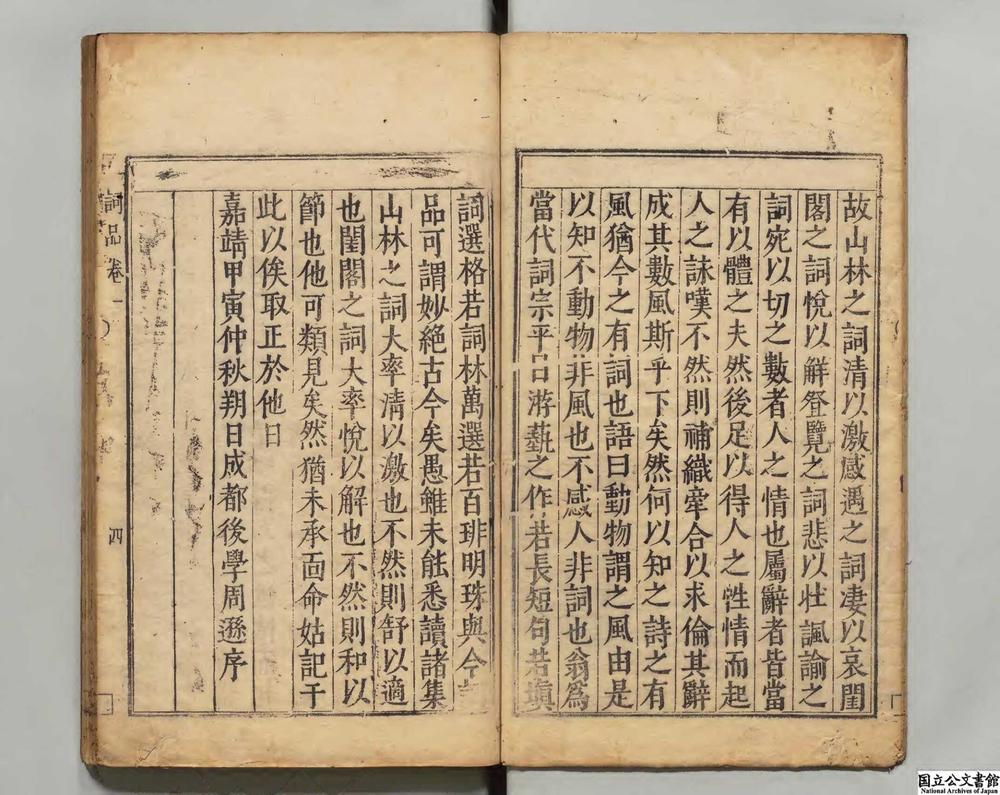 故山林之詞清以激感遇之詞淒以哀閨
閣之詞悅以解登覽之詞悲以壯諷諭之
詞宛以切之數者人之情也屬辭者皆當
有以體之夫然後足以得人之性情而起
人之詠嘆不然則補織牽合以求倫其辭
成其數風斯乎下矣然何以知之詩之有
風猶今之有詞也語曰動物謂之風由是
以知不動物非風也不感人非詞也翁為
當代詞宗平日游藝之作若長短句若填
詞選格若詞林萬選若百琲明珠與今
品可謂妙絕古今矣愚雖未能悉讀諸集
山林之詞大率清以激也不然則舒以適
也閨閣之詞大率悅以解也不然則和以
節也他可類見矣然猶未承面命姑記于
此以俟取正於他日
嘉靖甲寅仲秋朔日成都後學周遜序
詞品卷一
四
国立公文書館
National Archives of Japan